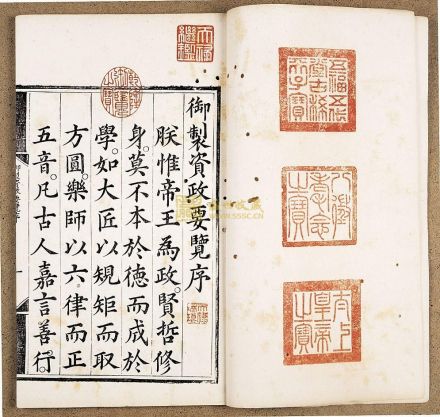 五福五代
堂古稀
天子寶
八徵
耄念
之寶
太上
皇帝
之寶
天祿
繼鑑
御製資政要覽序
朕惟帝王為政。賢哲修
身。莫不本於德而成於
學。如大匠以規矩而取
方圓。樂師以六律而正
五音。凡古人嘉言善行
SSSC.CN